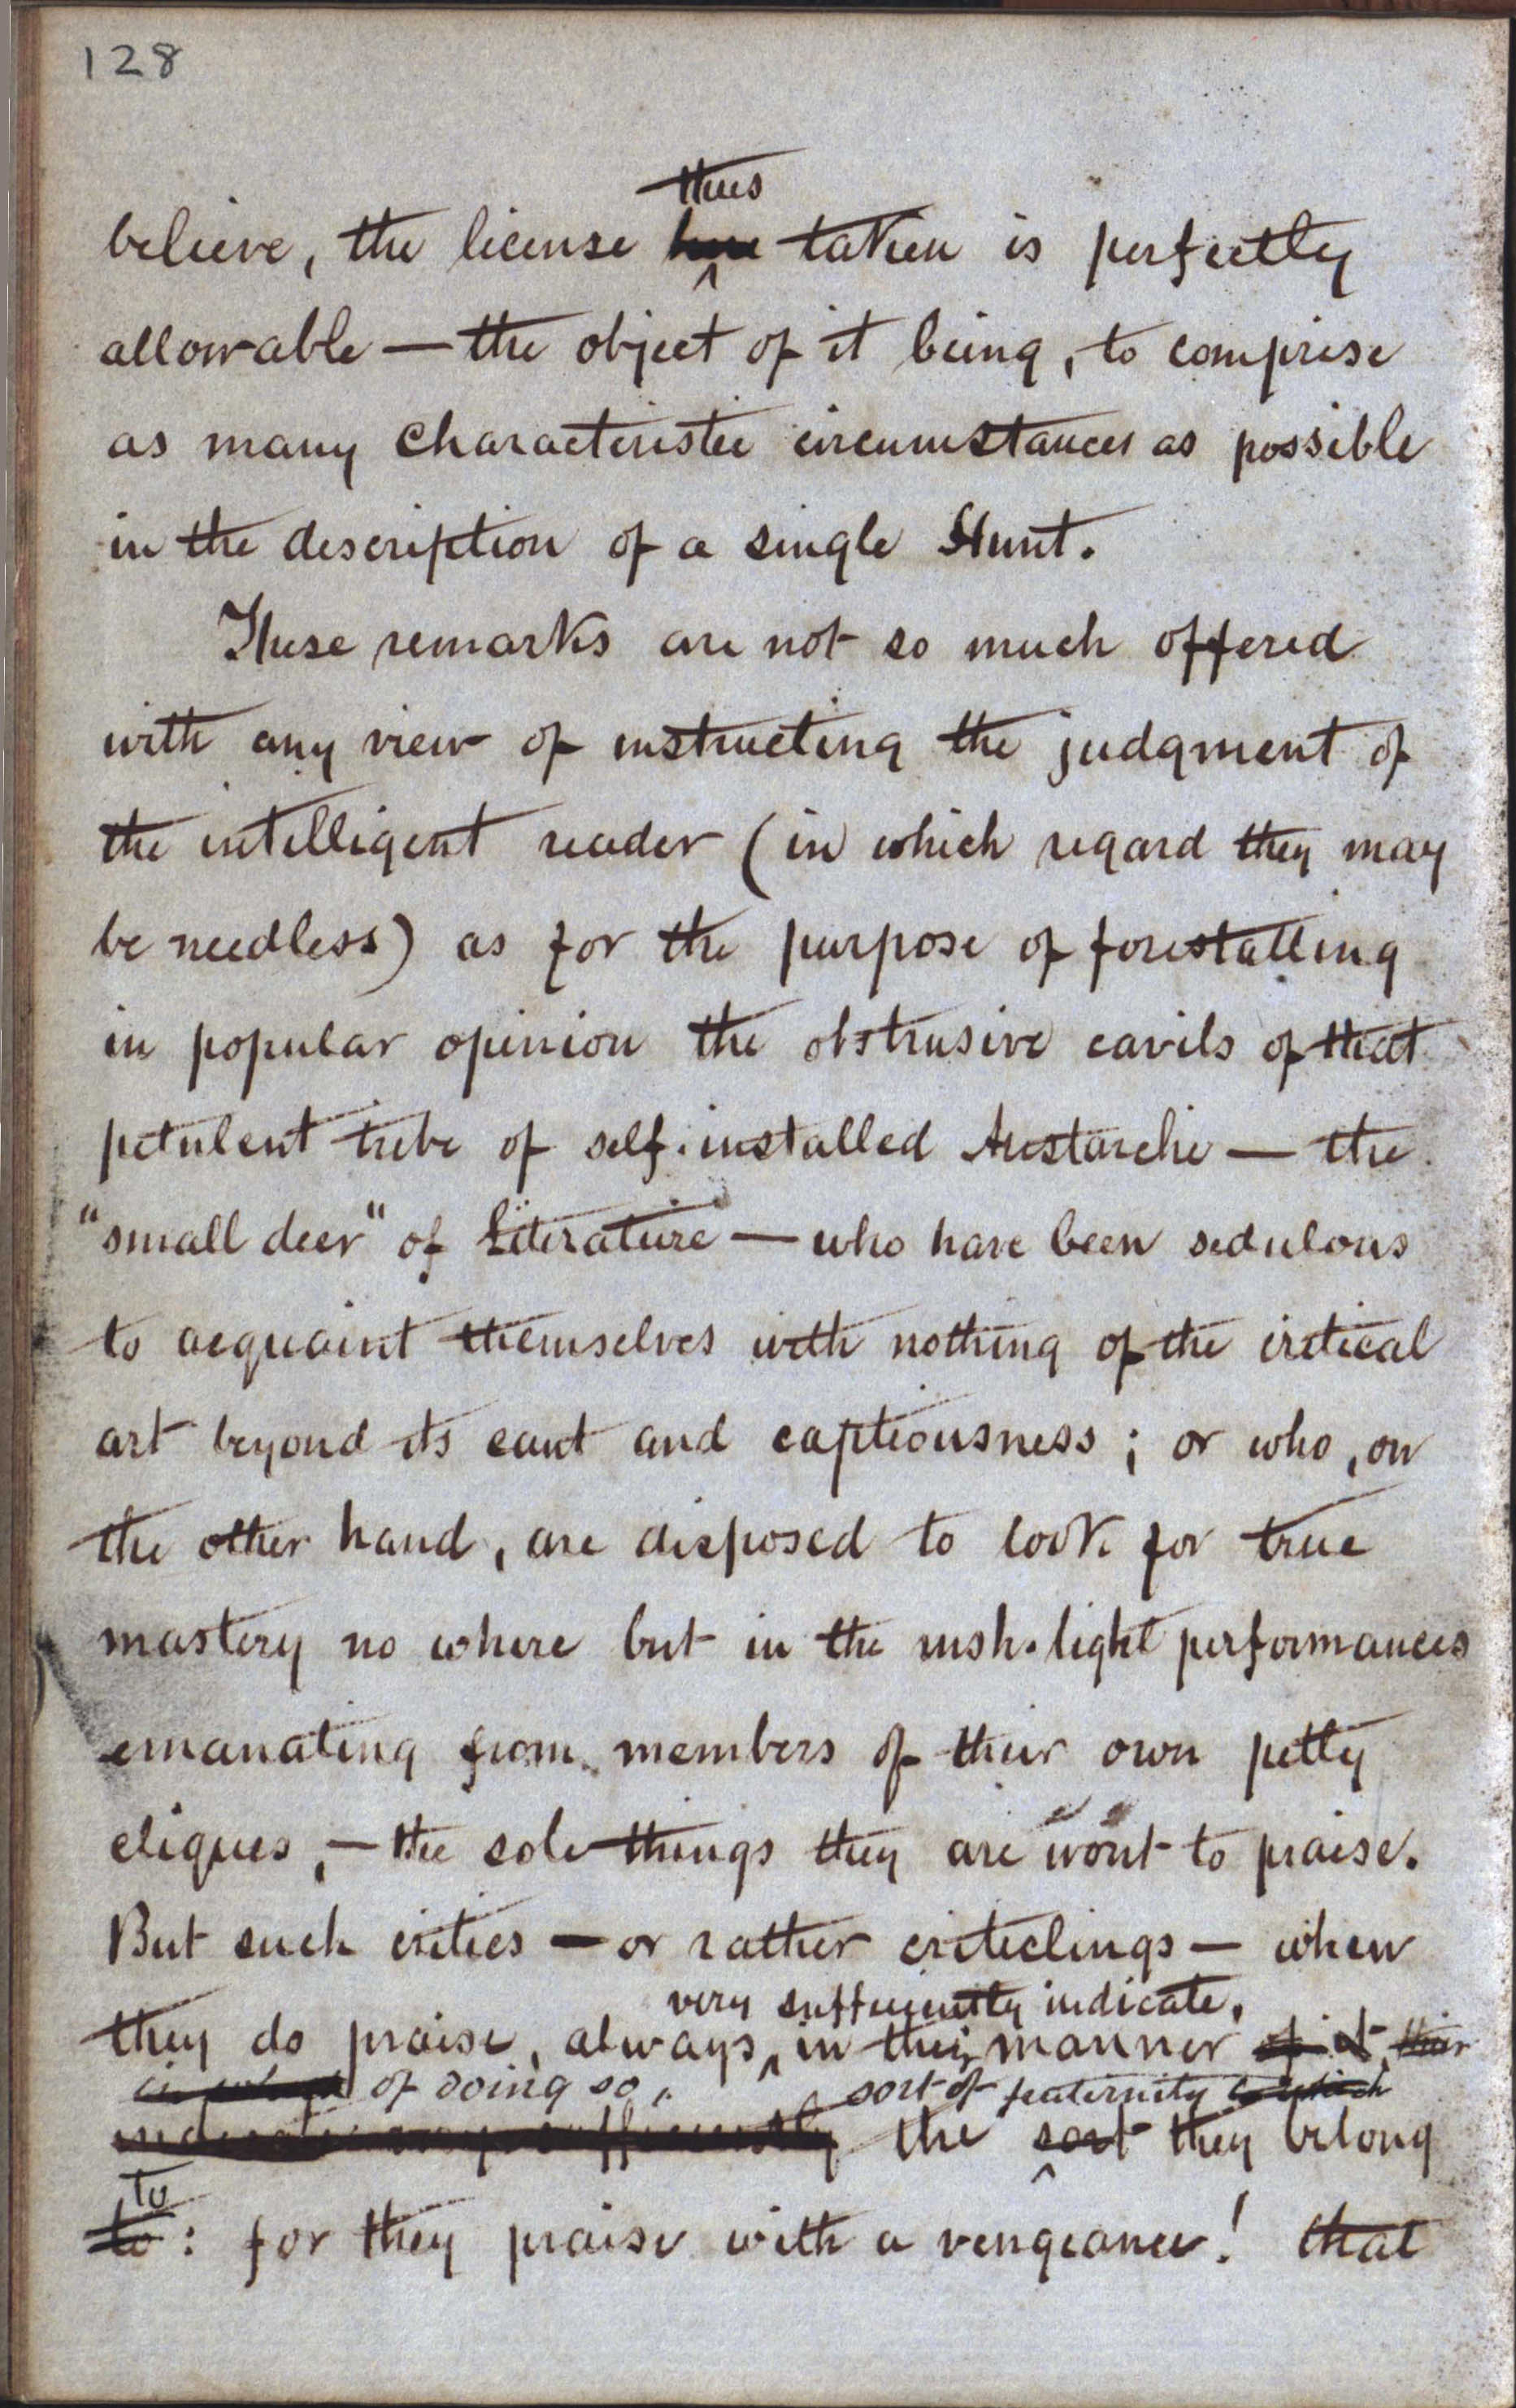 128
thus
believe, the license here taken is perfectly
allowable — the object of it being, to comprise
as many characteristic circumstances as possible
in the description of a single Hunt.
These remarks are not so much offered
with any view of instructing the judgment of
the intelligent reader (in which regard they may
be needless) as for the purpose of forestalling
in popular opinion the obstrusive cavils of that
petulent tribe of self-installed Aristarchi — the
"small deer" of Literature — who have been sedulous
to acquaint themselves with nothing of the critical
art beyond its cant and captiousness; or who, on
the other hand, are disposed to look for true
mastery no where but in the rush-light performances
emanating from members of their own petty
cliques, — the sole things they are wont to praise.
But such critics — or rather criticlings — when
very sufficiently indicate,
they do praise, always, in their manner of it, their
of doing so, sort of fraternity to which
indicate very sufficiently the sort they belong
to
to: for they praise with a vengeance! that